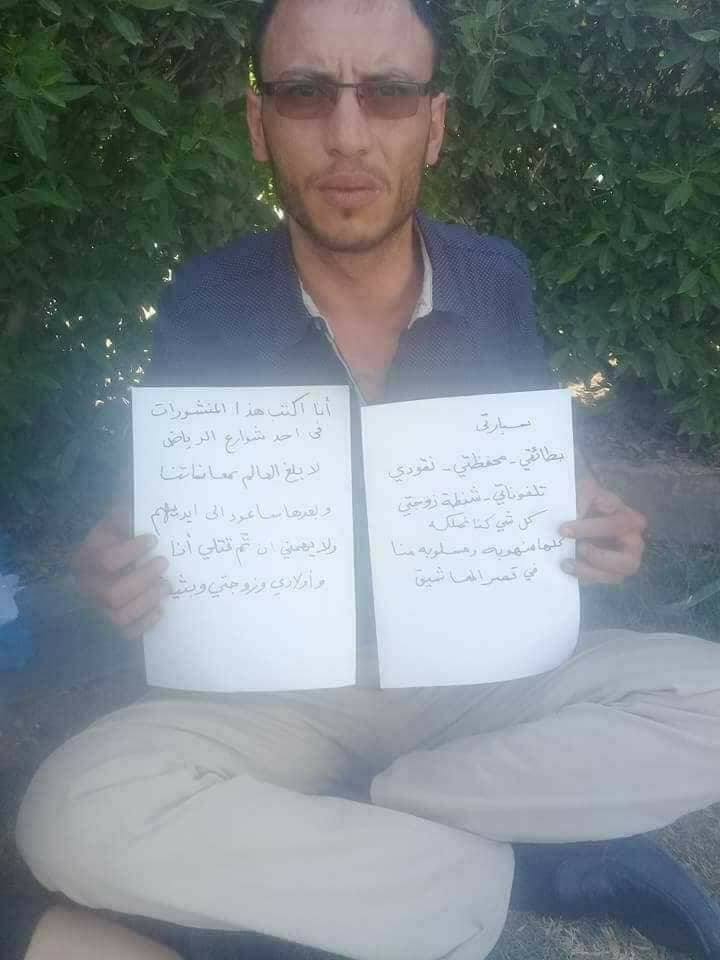 أنا اكتب هذا المنشورات
في احد شوارع الرياض
لا بلغ العالم بمعاناتنا
وبعدها ساعود الى ايديهم
ولا يهمني ان تم قتلي أنا
وأولادي وزوجتي وبثينة
سيارتي
بطائقي - محفظتي - نقودي
تلفوناتي - شنطة زوجتي
كل شي كنا نملكه
كلها منهوبه ومسلوبه منا
في قصر المعاشيق